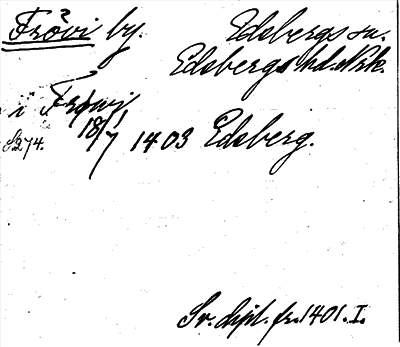 Frövi by. Edsbergs sn.
Edsbergs hd. Nrk.
i Frøwi
S274. 18/7 1403 Edsberg.
Sv. dipl. fr. 1401. I.